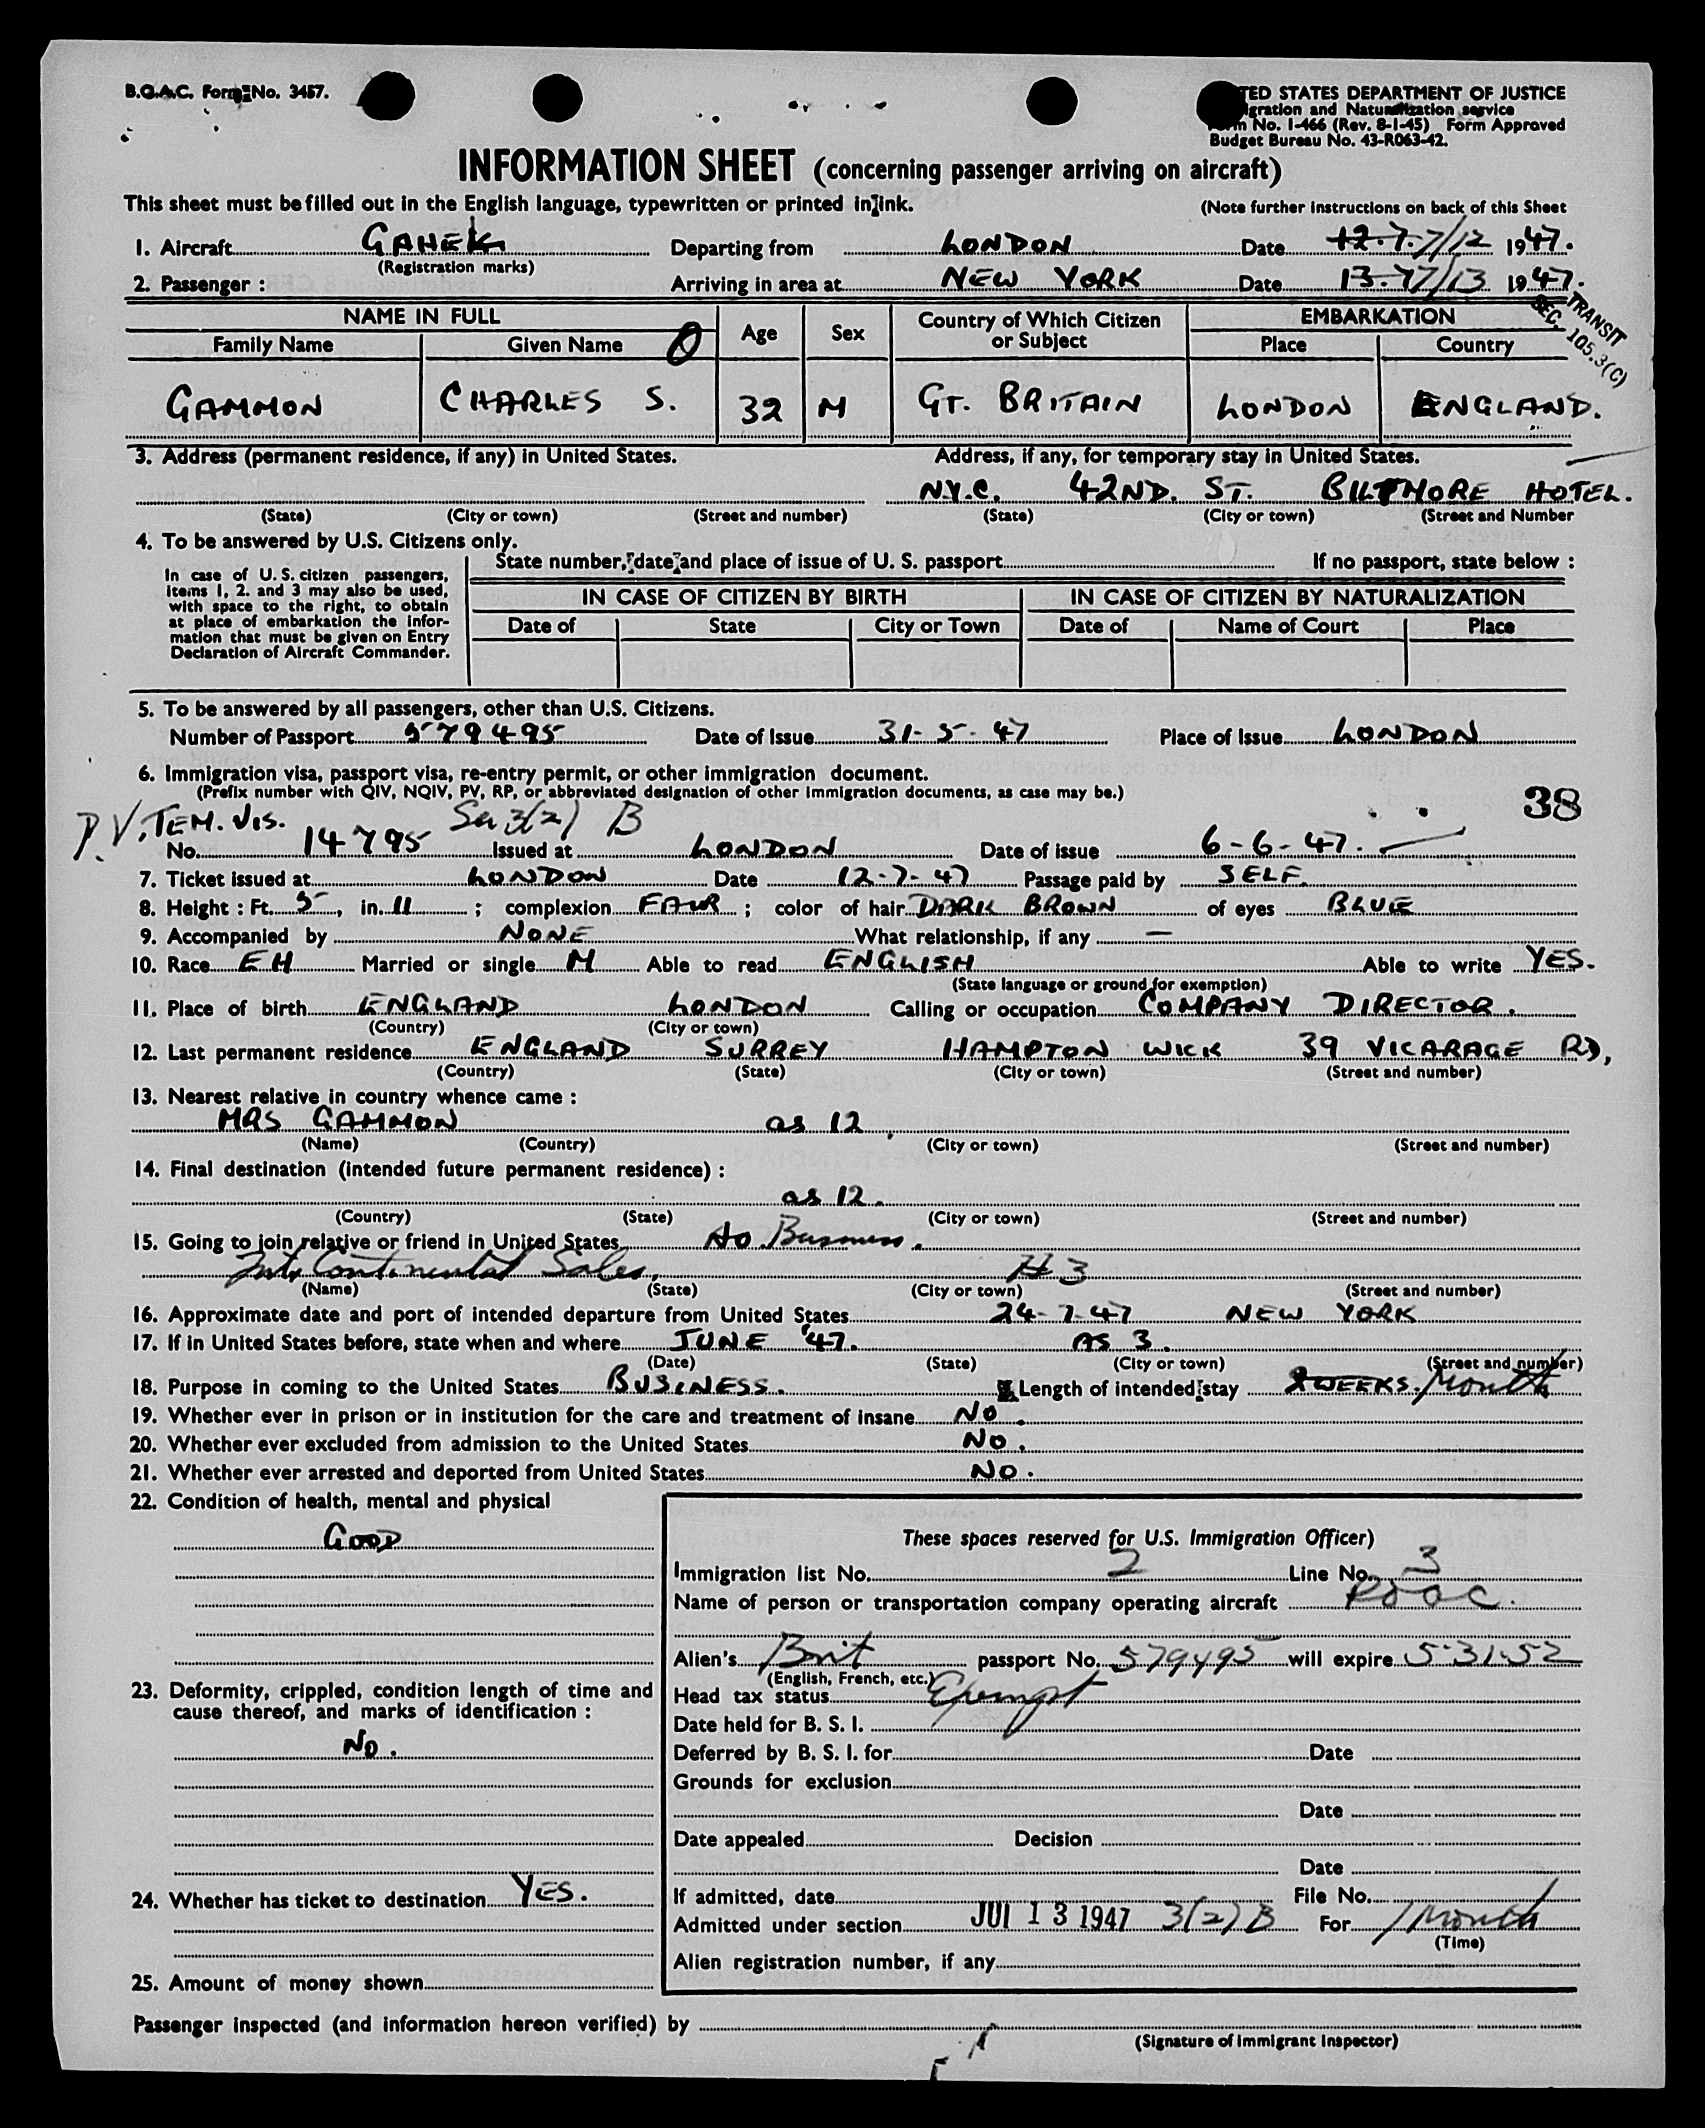 B.O.A.C. Form No. 3457.
TED STATES DEPARTMENT OF JUSTICE
gration and Naturalization service
rm No. I-466 (Rev. 8-1-45) Form Approved
Budget Bureau No. 43-R063-42.
INFORMATION SHEET (concerning passenger arriving on aircraft)
This sheet must be filled out in the English language, typewritten or printed in ink.
(Note further instructions on back of this Sheet
1. Aircraft GAHEK Departing from LONDON Date 12.7. 7/12 1947.
(Registration marks)
2. Passenger : Arriving in area at NEW YORK Date 13.7 7/13 1947.
TRANSIT
SEC. 105.3(C)
NAME IN FULL Age Sex Country of Which Citizen or Subject EMBARKATION
Family Name Given Name O Place Country
GAMMON CHARLES S. 32 M GT. BRITAIN LONDON ENGLAND.
3. Address (permanent residence, if any) in United States. Address, if any, for temporary stay in United States.
N.Y.C. 42ND. ST. BILTMORE HOTEL.
(State) (City or town) (Street and number) (State) (City or town) (Street and Number
4. To be answered by U.S. Citizens only.
State number, date and place of issue of U. S. passport If no passport, state below :
In case of U. S. citizen passengers,
items 1, 2. and 3 may also be used,
with space to the right, to obtain
at place of embarkation the infor-
mation that must be given on Entry
Declaration of Aircraft Commander.
IN CASE OF CITIZEN BY BIRTH IN CASE OF CITIZEN BY NATURALIZATION
Date of State City or Town Date of Name of Court Place
5. To be answered by all passengers, other than U.S. Citizens.
Number of Passport 579495 Date of Issue 31-5-47 Place of Issue LONDON
6. Immigration visa, passport visa, re-entry permit, or other immigration document.
(Prefix number with QIV, NQIV, PV, RP, or abbreviated designation of other immigration documents, as case may be.)
38
P.V. TEM. VIS. Sec 3(2) B
No. 14795 Issued at LONDON Date of issue 6-6-47.
7. Ticket issued at LONDON Date 12-7-47 Passage paid by SELF.
8. Height : Ft. 5, in. 11 ; complexion FAIR ; color of hair DARK BROWN of eyes BLUE
9. Accompanied by NONE What relationship, if any —
10. Race EH Married or single M Able to read ENGLISH Able to write YES.
(State language or ground for exemption)
11. Place of birth ENGLAND LONDON Calling or occupation COMPANY DIRECTOR.
(Country) (City or town)
12. Last permanent residence ENGLAND SURREY HAMPTON WICK 39 VICARAGE RD,
(Country) (State) (City or town) (Street and number)
13. Nearest relative in country whence came :
MRS GAMMON as 12.
(Name) (Country) (City or town) (Street and number)
14. Final destination (intended future permanent residence) :
as 12.
(Country) (State) (City or town) (Street and number)
15. Going to join relative or friend in United States No Business.
Inter Continental Sales, # 3
(Name) (State) (City or town) (Street and number)
16. Approximate date and port of intended departure from United States 24-7-47 NEW YORK
17. If in United States before, state when and where JUNE '47. AS 3.
(Date) (State) (City or town) (Street and number)
18. Purpose in coming to the United States BUSINESS. Length of intended stay 2 WEEKS. 1 Month
19. Whether ever in prison or in institution for the care and treatment of insane NO.
20. Whether ever excluded from admission to the United States NO.
21. Whether ever arrested and deported from United States NO.
22. Condition of health, mental and physical
GOOD
23. Deformity, crippled, condition length of time and
cause thereof, and marks of identification :
NO.
24. Whether has ticket to destination YES.
25. Amount of money shown
These spaces reserved for U.S. Immigration Officer)
Immigration list No. 2 Line No. 3
Name of person or transportation company operating aircraft BOAC.
Alien's Brit passport No. 579495 will expire 5-31-52
(English, French, etc.)
Head tax status Exempt
Date held for B. S. I.
Deferred by B. S. I. for Date
Grounds for exclusion
Date
Date appealed Decision
Date
If admitted, date File No.
Admitted under section JUL 13 1947 3(2) B For 1 Month
(Time)
Alien registration number, if any
Passenger inspected (and information hereon verified) by
(Signature of Immigrant Inspector)